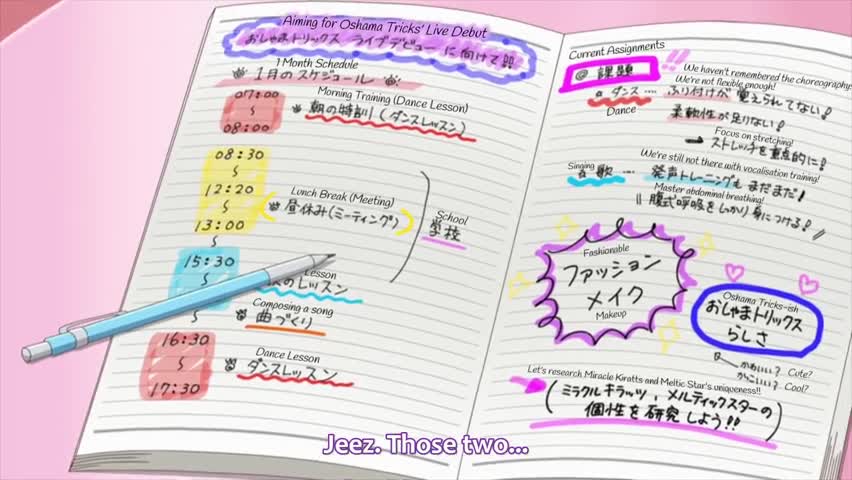 Aiming for Oshama Tricks' Live Debut
おしゃまトリックス ライブデビュー に向けて!!
1 Month Schedule
1月のスケジュール
07:00
~
08:00
Morning Training (Dance Lesson)
朝の特訓 (ダンスレッスン)
08:30
~
12:20
~
13:00
~
15:30
Lunch Break (Meeting)
昼休み(ミーティング)
School
学校
Lesson
のレッスン
Composing a song
曲づくり
16:30
~
17:30
Dance Lesson
ダンスレッスン
Current Assignments
@ 課題 !!
We haven't remembered the choreography
We're not flexible enough!
ダンス … ふり付けが覚えられてない!
Dance
柔軟性が足りない!
Focus on stretching!
→ ストレッチを重点的に!
We're still not there with vocalisation training!
Singing
歌 … 発声トレーニングもまだまだ!
Master abdominal breathing!
腹式呼吸をしっかり身につける!
Fashionable
ファッション
メイク
Makeup
Oshama Tricks-ish
おしゃまトリックス
らしさ
かわいい? Cute?
かっこいい? Cool?
Let's research Miracle Kiratts and Meltic Star's uniqueness!!
(ミラクルキラッツ、メルティックスターの
個性を研究しよう!!)
Jeez. Those two...